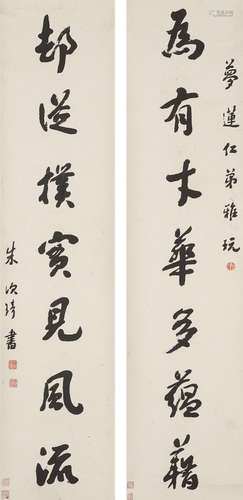 夢蓮仁弟雅玩
為有才華多蘊藉
却從樸實見風流
朱次琦書